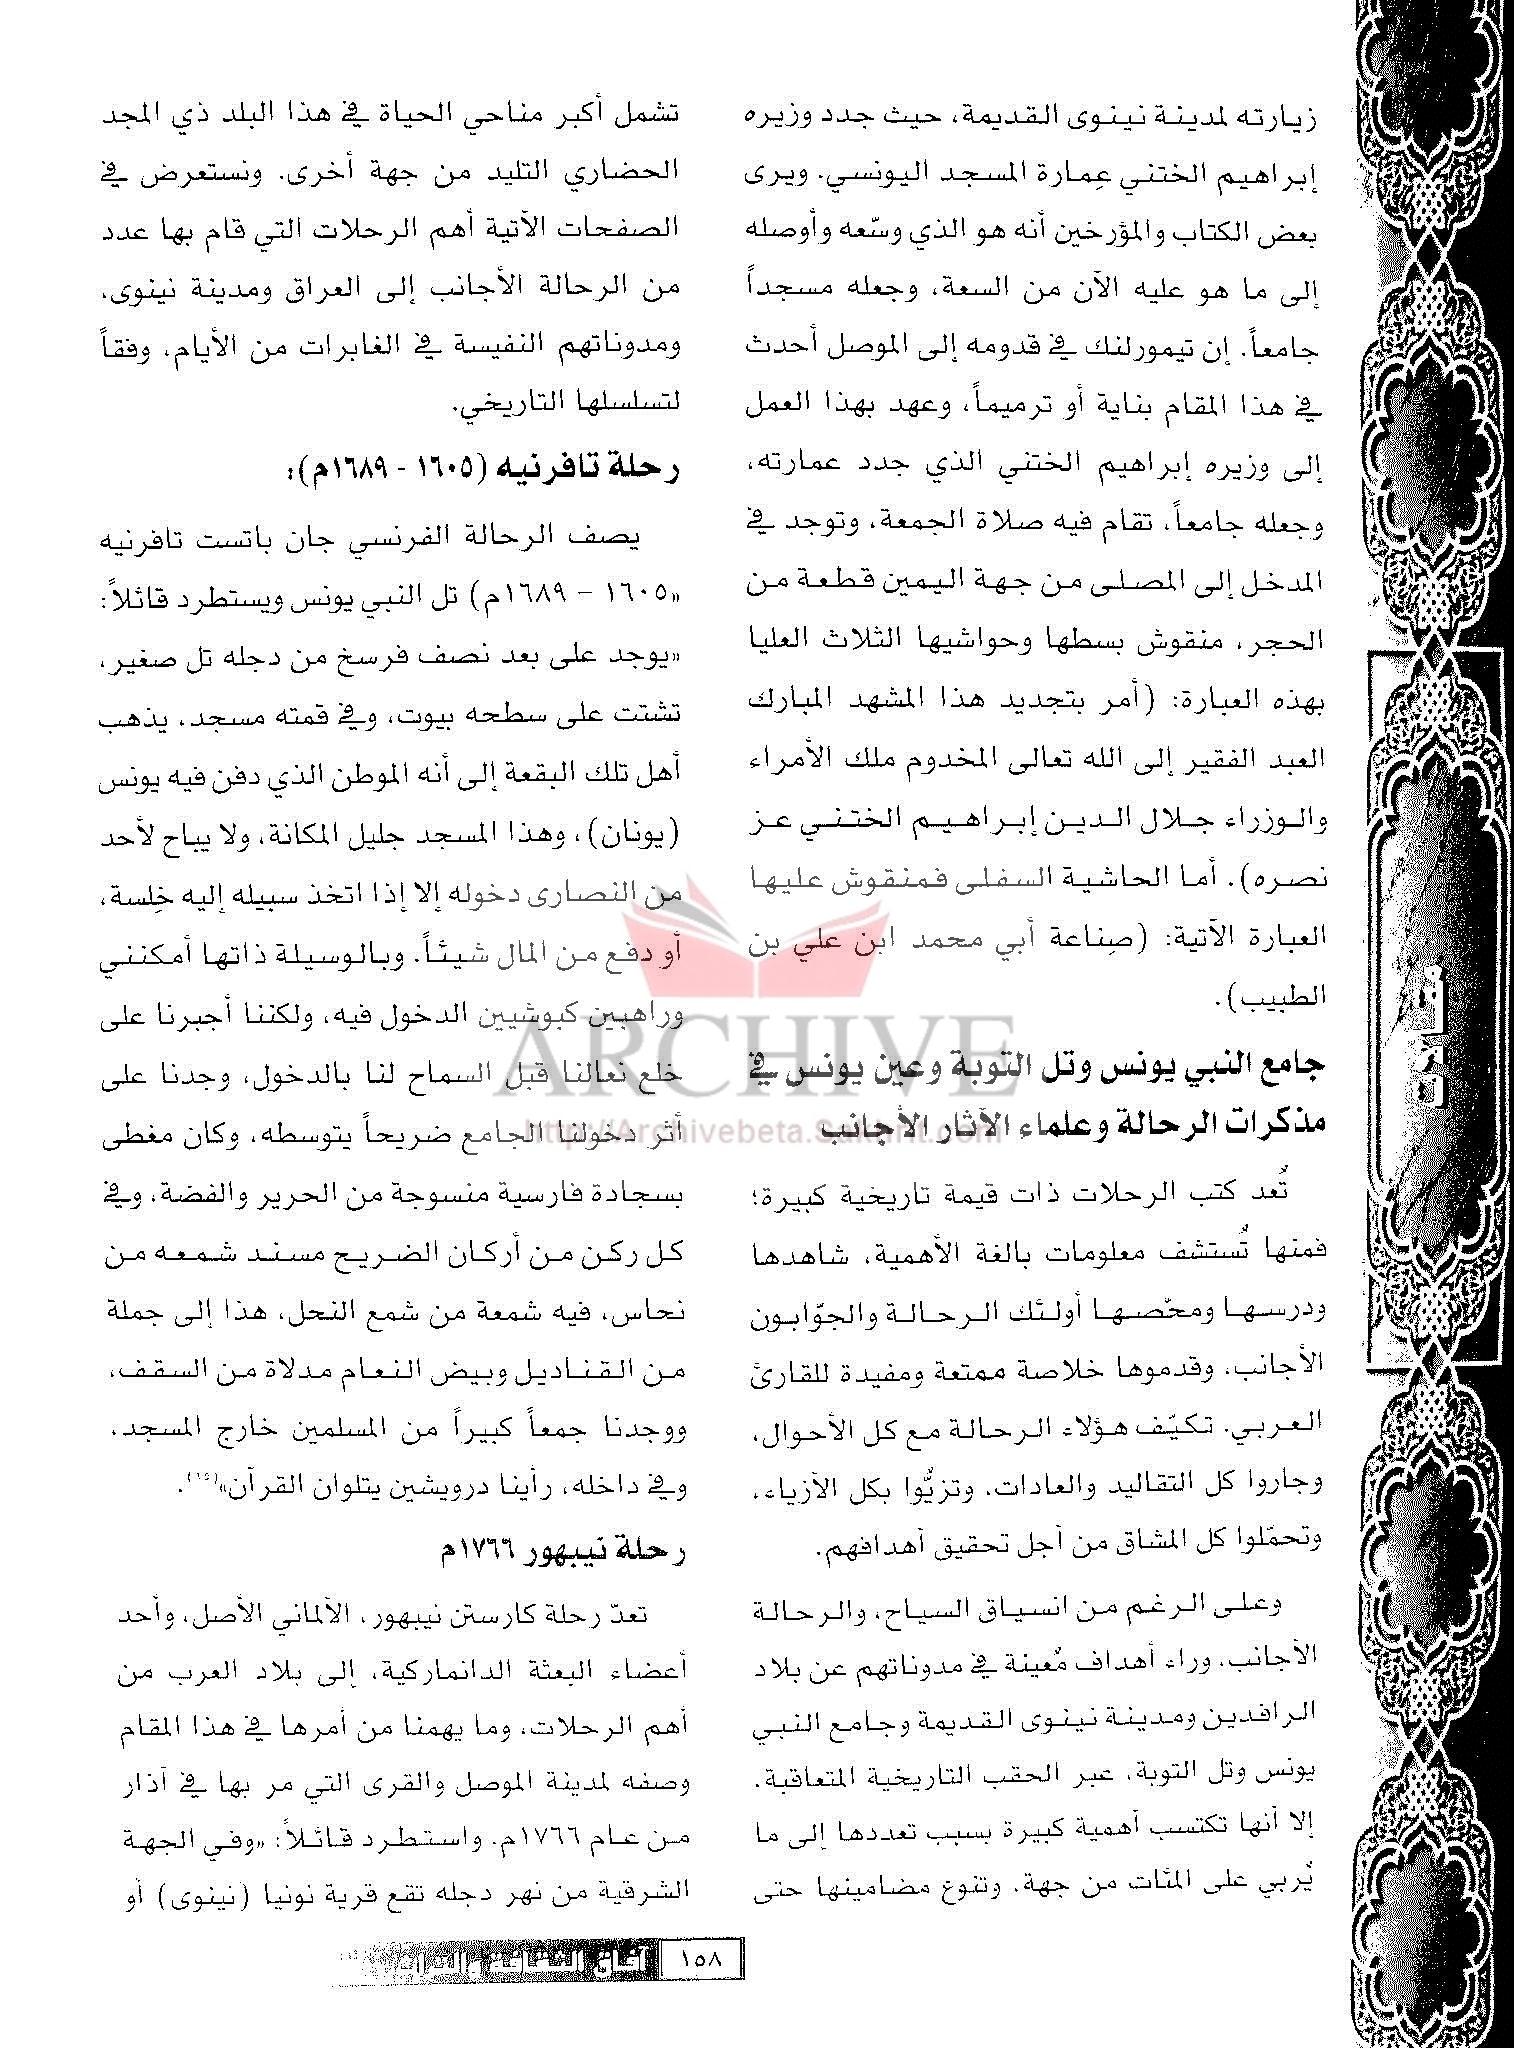 زيارته لمدينة نينوى القديمة، حيث جدد وزيره
إبراهيم الختني عِمارة المسجد اليونسي. ويرى
بعض الكتاب والمؤرخين أنه هو الذي وسّعه وأوصله
إلى ما هو عليه الآن من السعة، وجعله مسجداً
جامعاً. إن تيمورلنك في قدومه إلى الموصل أحدث
في هذا المقام بناية أو ترميماً، وعهد بهذا العمل
إلى وزيره إبراهيم الختني الذي جدد عمارته،
وجعله جامعاً، تقام فيه صلاة الجمعة، وتوجد في
المدخل إلى المصلى من جهة اليمين قطعة من
الحجر، منقوش بسطها وحواشيها الثلاث العليا
بهذه العبارة: (أمر بتجديد هذا المشهد المبارك
العبد الفقير إلى الله تعالى المخدوم ملك الأمراء
والوزراء جلال الدين إبراهيم الختني عز
نصره). أما الحاشية السفلى فمنقوش عليها
العبارة الآتية: (صِناعة أبي محمد ابن علي بن
الطبيب).
جامع النبي يونس وتل التوبة وعين يونس في
مذكرات الرحالة وعلماء الآثار الأجانب
تُعد كتب الرحلات ذات قيمة تاريخية كبيرة؛
فمنها تُستشف معلومات بالغة الأهمية، شاهدها
ودرسها ومحّصها أولئك الرحالة والجوّابون
الأجانب، وقدموها خلاصة ممتعة ومفيدة للقارئ
العربي. تكيّف هؤلاء الرحالة مع كل الأحوال،
وجاروا كل التقاليد والعادات، وتزيُّوا بكل الأزياء،
وتحمّلوا كل المشاق من أجل تحقيق أهدافهم.
وعلى الرغم من انسياق السياح، والرحالة
الأجانب، وراء أهداف مُعينة في مدوناتهم عن بلاد
الرافدين ومدينة نينوى القديمة وجامع النبي
يونس وتل التوبة، عبر الحقب التاريخية المتعاقبة.
إلا أنها تكتسب أهمية كبيرة بسبب تعددها إلى ما
يُربي على المئات من جهة، وتنوع مضامينها حتى
تشمل أكبر مناحي الحياة في هذا البلد ذي المجد
الحضاري التليد من جهة أخرى. ونستعرض في
الصفحات الآتية أهم الرحلات التي قام بها عدد
من الرحالة الأجانب إلى العراق ومدينة نينوى،
ومدوناتهم النفيسة في الغابرات من الأيام، وفقاً
لتسلسلها التاريخي.
رحلة تافرنيه (١٦٠٥ - ١٦٨٩م):
يصف الرحالة الفرنسي جان باتست تافرنيه
«١٦٠٥ - ١٦٨٩م) تل النبي يونس ويستطرد قائلاً:
«يوجد على بعد نصف فرسخ من دجله تل صغير،
تشتت على سطحه بيوت، وفي قمته مسجد، يذهب
أهل تلك البقعة إلى أنه الموطن الذي دفن فيه يونس
(يونان)، وهذا المسجد جليل المكانة، ولا يباح لأحد
من النصارى دخوله إلا إذا اتخذ سبيله إليه خِلسة،
أو دفع من المال شيئاً. وبالوسيلة ذاتها أمكنني
وراهبين كبوشيين الدخول فيه، ولكننا أجبرنا على
خلع نعالنا قبل السماح لنا بالدخول، وجدنا على
أثر دخولنا الجامع ضريحاً يتوسطه، وكان مغطى
بسجادة فارسية منسوجة من الحرير والفضة، وفي
كل ركن من أركان الضريح مسند شمعه من
نحاس، فيه شمعة من شمع النحل، هذا إلى جملة
من القناديل وبيض النعام مدلاة من السقف،
ووجدنا جمعاً كبيراً من المسلمين خارج المسجد،
وفي داخله، رأينا درويشين يتلوان القرآن»(١٤).
رحلة نيبهور ١٧٦٦م
تعدّ رحلة كارستن نيبهور، الألماني الأصل، وأحد
أعضاء البعثة الدانماركية، إلى بلاد العرب من
أهم الرحلات، وما يهمنا من أمرها في هذا المقام
وصفه لمدينة الموصل والقرى التي مر بها في آذار
من عام ١٧٦٦م. واستطرد قائلاً: «وفي الجهة
الشرقية من نهر دجله تقع قرية نونيا (نينوى) أو
مقالات
ARCHIVE
١٥٨ آفاق الثقافة والتراث